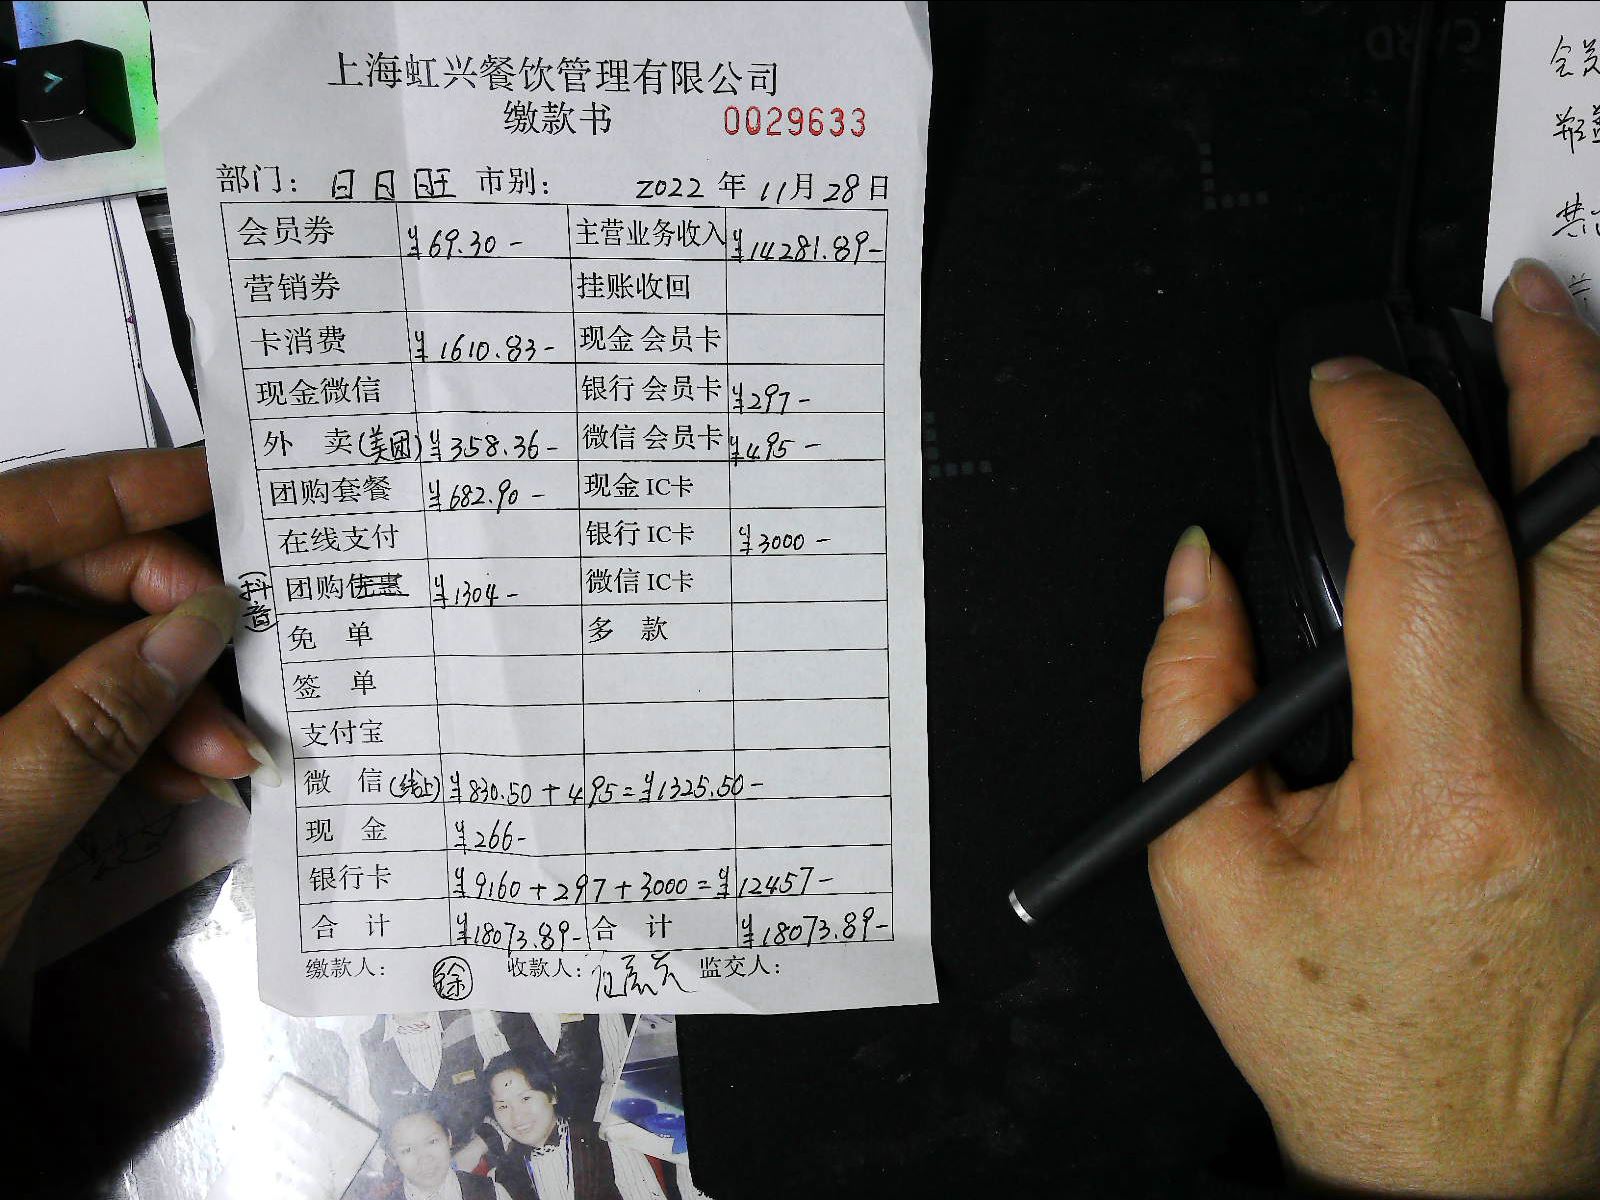 上海虹兴餐饮管理有限公司
缴款书 0029633
部门： 日日旺 市别： 2022 年 11 月 28 日
会员券 ¥69.30- 主营业务收入 ¥14281.89-
营销券 挂账收回
卡消费 ¥1610.83- 现金 会员卡
现金微信 银行 会员卡 ¥297-
外 卖(美团) ¥358.36- 微信 会员卡 ¥495-
团购套餐 ¥682.90- 现金 IC卡
在线支付 银行 IC卡 ¥3000-
(抖音) 团购优惠 ¥1304- 微信 IC卡
免 单 多 款
签 单
支付宝
微 信(线上) ¥830.50+495=¥1325.50-
现 金 ¥266-
银行卡 ¥9160+297+3000=¥12457-
合 计 ¥18073.89- 合 计 ¥18073.89-
缴款人： 徐 收款人： 监交人：